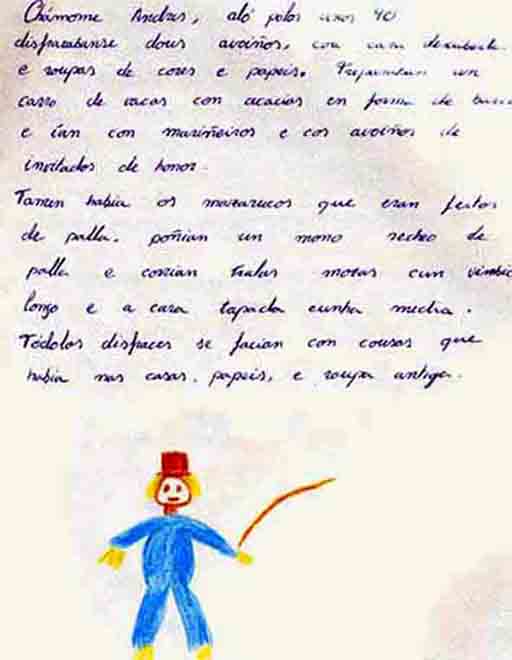 Chámome Andres, aló polos anos 40
disfrazabanse dous avoiños, con cara descuberta
e roupas de cores e papeis. Preparaban un
carro de vacas con acacias en forma de barco
e ían con mariñeiros e cos avoiños de
invitados de honor.
Tamen habia os mazarucos que eran feitos
de palla. poñian un mono recheo de
palla e corrian tralas mozas cun vimbio
longo e a cara tapada cunha media.
Tódolos disfraces se facian con cousas que
habia nas casas, papeis, e roupa antiga.